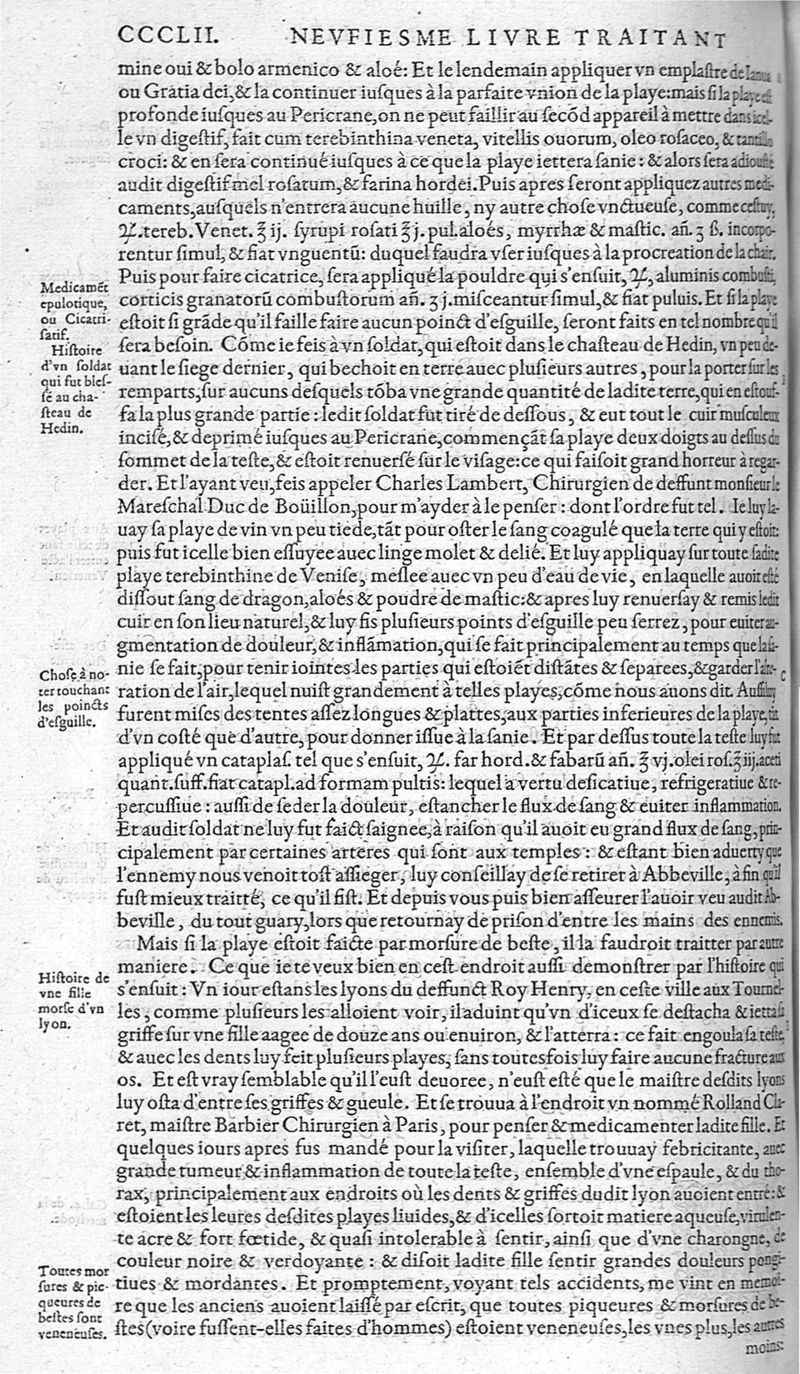 CCCLII. NEVFIESME LIVRE TRAITANT
mine oui & bolo armenico & aloé: Et le lendemain appliquer vn emplastre de Ianua
ou Gratia dei, & la continuer iusques à la parfaite vnion de la playe: mais si la playe est
profonde iusques au Pericrane, on ne peut faillir au secõd appareil à mettre dans icel-
le vn digestif, fait cum terebinthina veneta, vitellis ouorum, oleo rosaceo, & tantillo
croci: & en sera continué iusques à ce que la playe iettera sanie: & alors sera adiousté
audit digestif mel rosatum, & farina hordei. Puis apres seront appliquez autres medi-
caments, ausquels n'entrera aucune huille, ny autre chose vnctueuse, comme cestuy,
℞. tereb. Venet. ℥ ij. syrupi rosati ℥ j. pul. aloés, myrrhæ & mastic. añ. ʒ ß. incorpo-
rentur simul, & fiat vnguentũ: duquel faudra vser iusques à la procreation de la chair.
Puis pour faire cicatrice, sera appliqué la pouldre qui s'ensuit, ℞, aluminis combusti,
corticis granatorũ combustorum añ. ʒ j. misceantur simul, & fiat puluis. Et si la playe
estoit si grãde qu'il faille faire aucun poinct d'esguille, seront faits en tel nombre qu'il
sera besoin. Cõme ie feis à vn soldat, qui estoit dans le chasteau de Hedin, vn peu de-
uant le siege dernier, qui bechoit en terre auec plusieurs autres, pour la porter sur les
remparts, sur aucuns desquels tõba vne grande quantité de ladite terre, qui en estouf-
fa la plus grande partie: ledit soldat fut tiré de dessous, & eut tout le cuir musculeux
incisé, & deprimé iusques au Pericrane, commençãt sa playe deux doigts au dessus du
sommet de la teste, & estoit renuersé sur le visage: ce qui faisoit grand horreur à regar-
der. Et l'ayant veu, feis appeler Charles Lambert, Chirurgien de deffunt monsieur le
Mareschal Duc de Boüillon, pour m'ayder à le penser: dont l'ordre fut tel. Ie luy la-
uay sa playe de vin vn peu tiede, tãt pour oster le sang coagulé que la terre qui y estoit:
puis fut icelle bien essuyee auec linge molet & delié. Et luy appliquay sur toute sadite
playe terebinthine de Venise, meslee auec vn peu d'eau de vie, en laquelle auoit esté
dissout sang de dragon, aloés & poudre de mastic: & apres luy renuersay & remis ledit
cuir en son lieu naturel, & luy fis plusieurs points d'esguille peu serrez, pour euiter au-
gmentation de douleur, & inflãmation, qui se fait principalement au temps que la sa-
nie se fait, pour tenir iointes les parties qui estoiẽt distãtes & separees, & garder l'alte-
ration de l'air, lequel nuist grandement à telles playes, cõme nous auons dit. Aussi luy
furent mises des tentes assez longues & plattes, aux parties inferieures de la playe, tãt
d'vn costé que d'autre, pour donner issue à la sanie. Et par dessus toute la teste luy fut
appliqué vn cataplas. tel que s'ensuit, ℞. far hord. & fabarũ añ. ℥ vj. olei ros. ℥ iij. aceti
quant. suff. fiat catapl. ad formam pultis: lequel a vertu desicatiue, refrigeratiue & re-
percussiue: aussi de seder la douleur, estancher le flux de sang & euiter inflammation.
Et audit soldat ne luy fut faict saignee, à raison qu'il auoit eu grand flux de sang, prin-
cipalement par certaines arteres qui sont aux temples: & estant bien aduerty que
l'ennemy nous venoit tost assieger, luy conseillay de se retirer à Abbeville, à fin qu'il
fust mieux traitté, ce qu'il fist. Et depuis vous puis bien asseurer l'auoir veu audit Ab-
beville, du tout guary, lors que retournay de prison d'entre les mains des ennemis.
Mais si la playe estoit faicte par morsure de beste, il la faudroit traitter par autre
maniere. Ce que ie te veux bien en cest endroit aussi demonstrer par l'histoire qui
s'ensuit: Vn iour estans les lyons du deffunct Roy Henry, en ceste ville aux Tournel-
les, comme plusieurs les alloient voir, il aduint qu'vn d'iceux se destacha & ietta sa
griffe sur vne fille aagee de douze ans ou enuiron, & l'atterra: ce fait engoula sa teste,
& auec les dents luy feit plusieurs playes, sans toutesfois luy faire aucune fracture aux
os. Et est vray semblable qu'il l'eust deuoree, n'eust esté que le maistre desdits lyons
luy osta d'entre ses griffes & gueule. Et se trouua à l'endroit vn nommé Rolland Cla-
ret, maistre Barbier Chirurgien à Paris, pour penser & medicamenter ladite fille. Et
quelques iours apres fus mandé pour la visiter, laquelle trouuay febricitante, auec
grande tumeur & inflammation de toute la teste, ensemble d'vne espaule, & du tho-
rax, principalement aux endroits où les dents & griffes dudit lyon auoient entré: &
estoient les leures desdites playes liuides, & d'icelles sortoit matiere aqueuse, virulen-
te acre & fort fœtide, & quasi intolerable à sentir, ainsi que d'vne charongne, de
couleur noire & verdoyante: & disoit ladite fille sentir grandes douleurs pongi-
tiues & mordantes. Et promptement, voyant tels accidents, me vint en memoi-
re que les anciens auoient laissé par escrit, que toutes piqueures & morsures de be-
stes (voire fussent-elles faites d'hommes) estoient veneneuses, les vnes plus, les autres
moins:
Medicamẽt
epulotique,
ou Cicatri-
satif.
Histoire
d'vn soldat
qui fut bles-
sé au cha-
steau de
Hedin.
Chose à no-
ter touchant
les poincts
d'esguille.
Histoire de
vne fille
morse d'vn
lyon.
Toutes mor
sures & pic-
queures de
bestes sont
veneneuses.